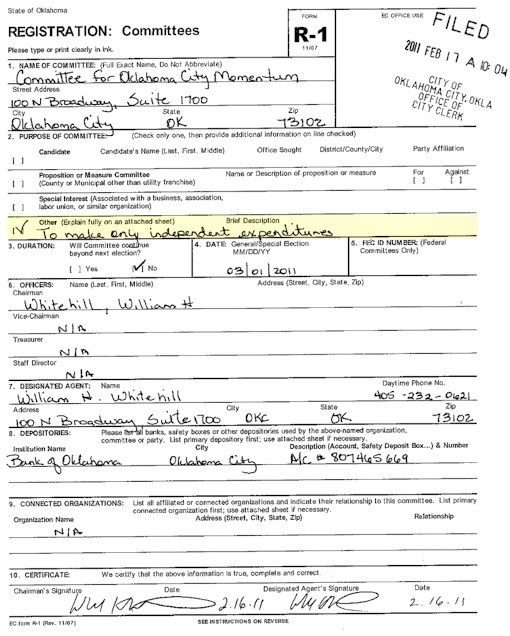 State of Oklahoma
REGISTRATION: Committees
Please type or print clearly in ink.
FORM
R-1
11/07
EC OFFICE USE
FILED
2011 FEB 17 A 10:04
CITY OF
OKLAHOMA CITY, OKLA
OFFICE OF
CITY CLERK
1. NAME OF COMMITTEE: (Full Exact Name, Do Not Abbreviate)
Committee for Oklahoma City Momentum
Street Address
100 N Broadway, Suite 1700
City State Zip
Oklahoma City OK 73102
2. PURPOSE OF COMMITTEE: (Check only one, then provide additional information on line checked)
Candidate Candidate's Name (Last, First, Middle) Office Sought District/County/City Party Affiliation
[ ]
Proposition or Measure Committee Name or Description of proposition or measure For Against
[ ] (County or Municipal other than utility franchise) [ ] [ ]
Special Interest (Associated with a business, association,
[ ] labor union, or similar organization)
Other (Explain fully on an attached sheet) Brief Description
To make only independent expenditures
3. DURATION: Will Committee continue
beyond next election?
[ ] Yes [✓] No
4. DATE: General/Special Election
MM/DD/YY
03/01/2011
5. FEC ID NUMBER: (Federal
Committees Only)
6. OFFICERS: Name (Last, First, Middle) Address (Street, City, State, Zip)
Chairman
Whitehill, William H
Vice-Chairman
N/A
Treasurer
N/A
Staff Director
N/A
7. DESIGNATED AGENT: Name Daytime Phone No.
William H. Whitehill 405-232-0621
Address City State Zip
100 N Broadway, Suite 1700 OKC OK 73102
8. DEPOSITORIES: Please list all banks, safety boxes or other depositories used by the above-named organization,
committee or party. List primary depository first; use attached sheet if necessary.
Institution Name City Description (Account, Safety Deposit Box...) & Number
Bank of Oklahoma Oklahoma City A/C # 807465669
9. CONNECTED ORGANIZATIONS: List all affiliated or connected organizations and indicate their relationship to this committee. List primary
connected organization first; use attached sheet if necessary.
Organization Name Address (Street, City, State, Zip) Relationship
N/A
10. CERTIFICATE: We certify that the above information is true, complete and correct.
Chairman's Signature Date Designated Agent's Signature Date
2.16.11 2.16.11
EC form R-1 (Rev. 11/07) SEE INSTRUCTIONS ON REVERSE